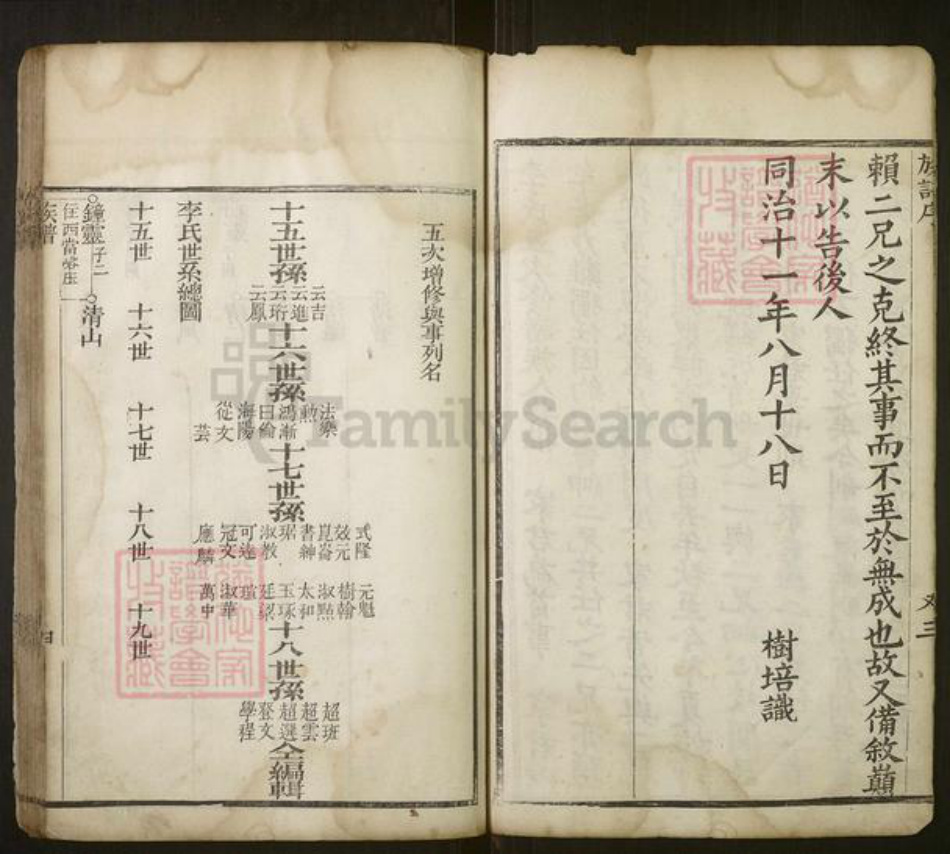 族譜序
賴二兄之克終其事而不至於無成也故又備敘巔
末以告後人
同治十一年八月十八日 樹培識
五次增修與事列名
十五世孫 云吉 云進 云珩 云鳳 十六世孫 法樂 勲 鴻漸 曰倫 海陽 從文 芸 十七世孫 式隆 效元 崑崙 書紳 琚 淑教 可達 冠文 應麟 元魁 樹翰 淑點 太和 玉琢 廷梁 瑄 淑華 萬中 十八世孫 超班 超雲 超選 登文 學程 仝編輯
李氏世系總圖
十五世 十六世 十七世 十八世 十九世
鐘靈 子二 清山
住西當
族譜
四
FamilySearch